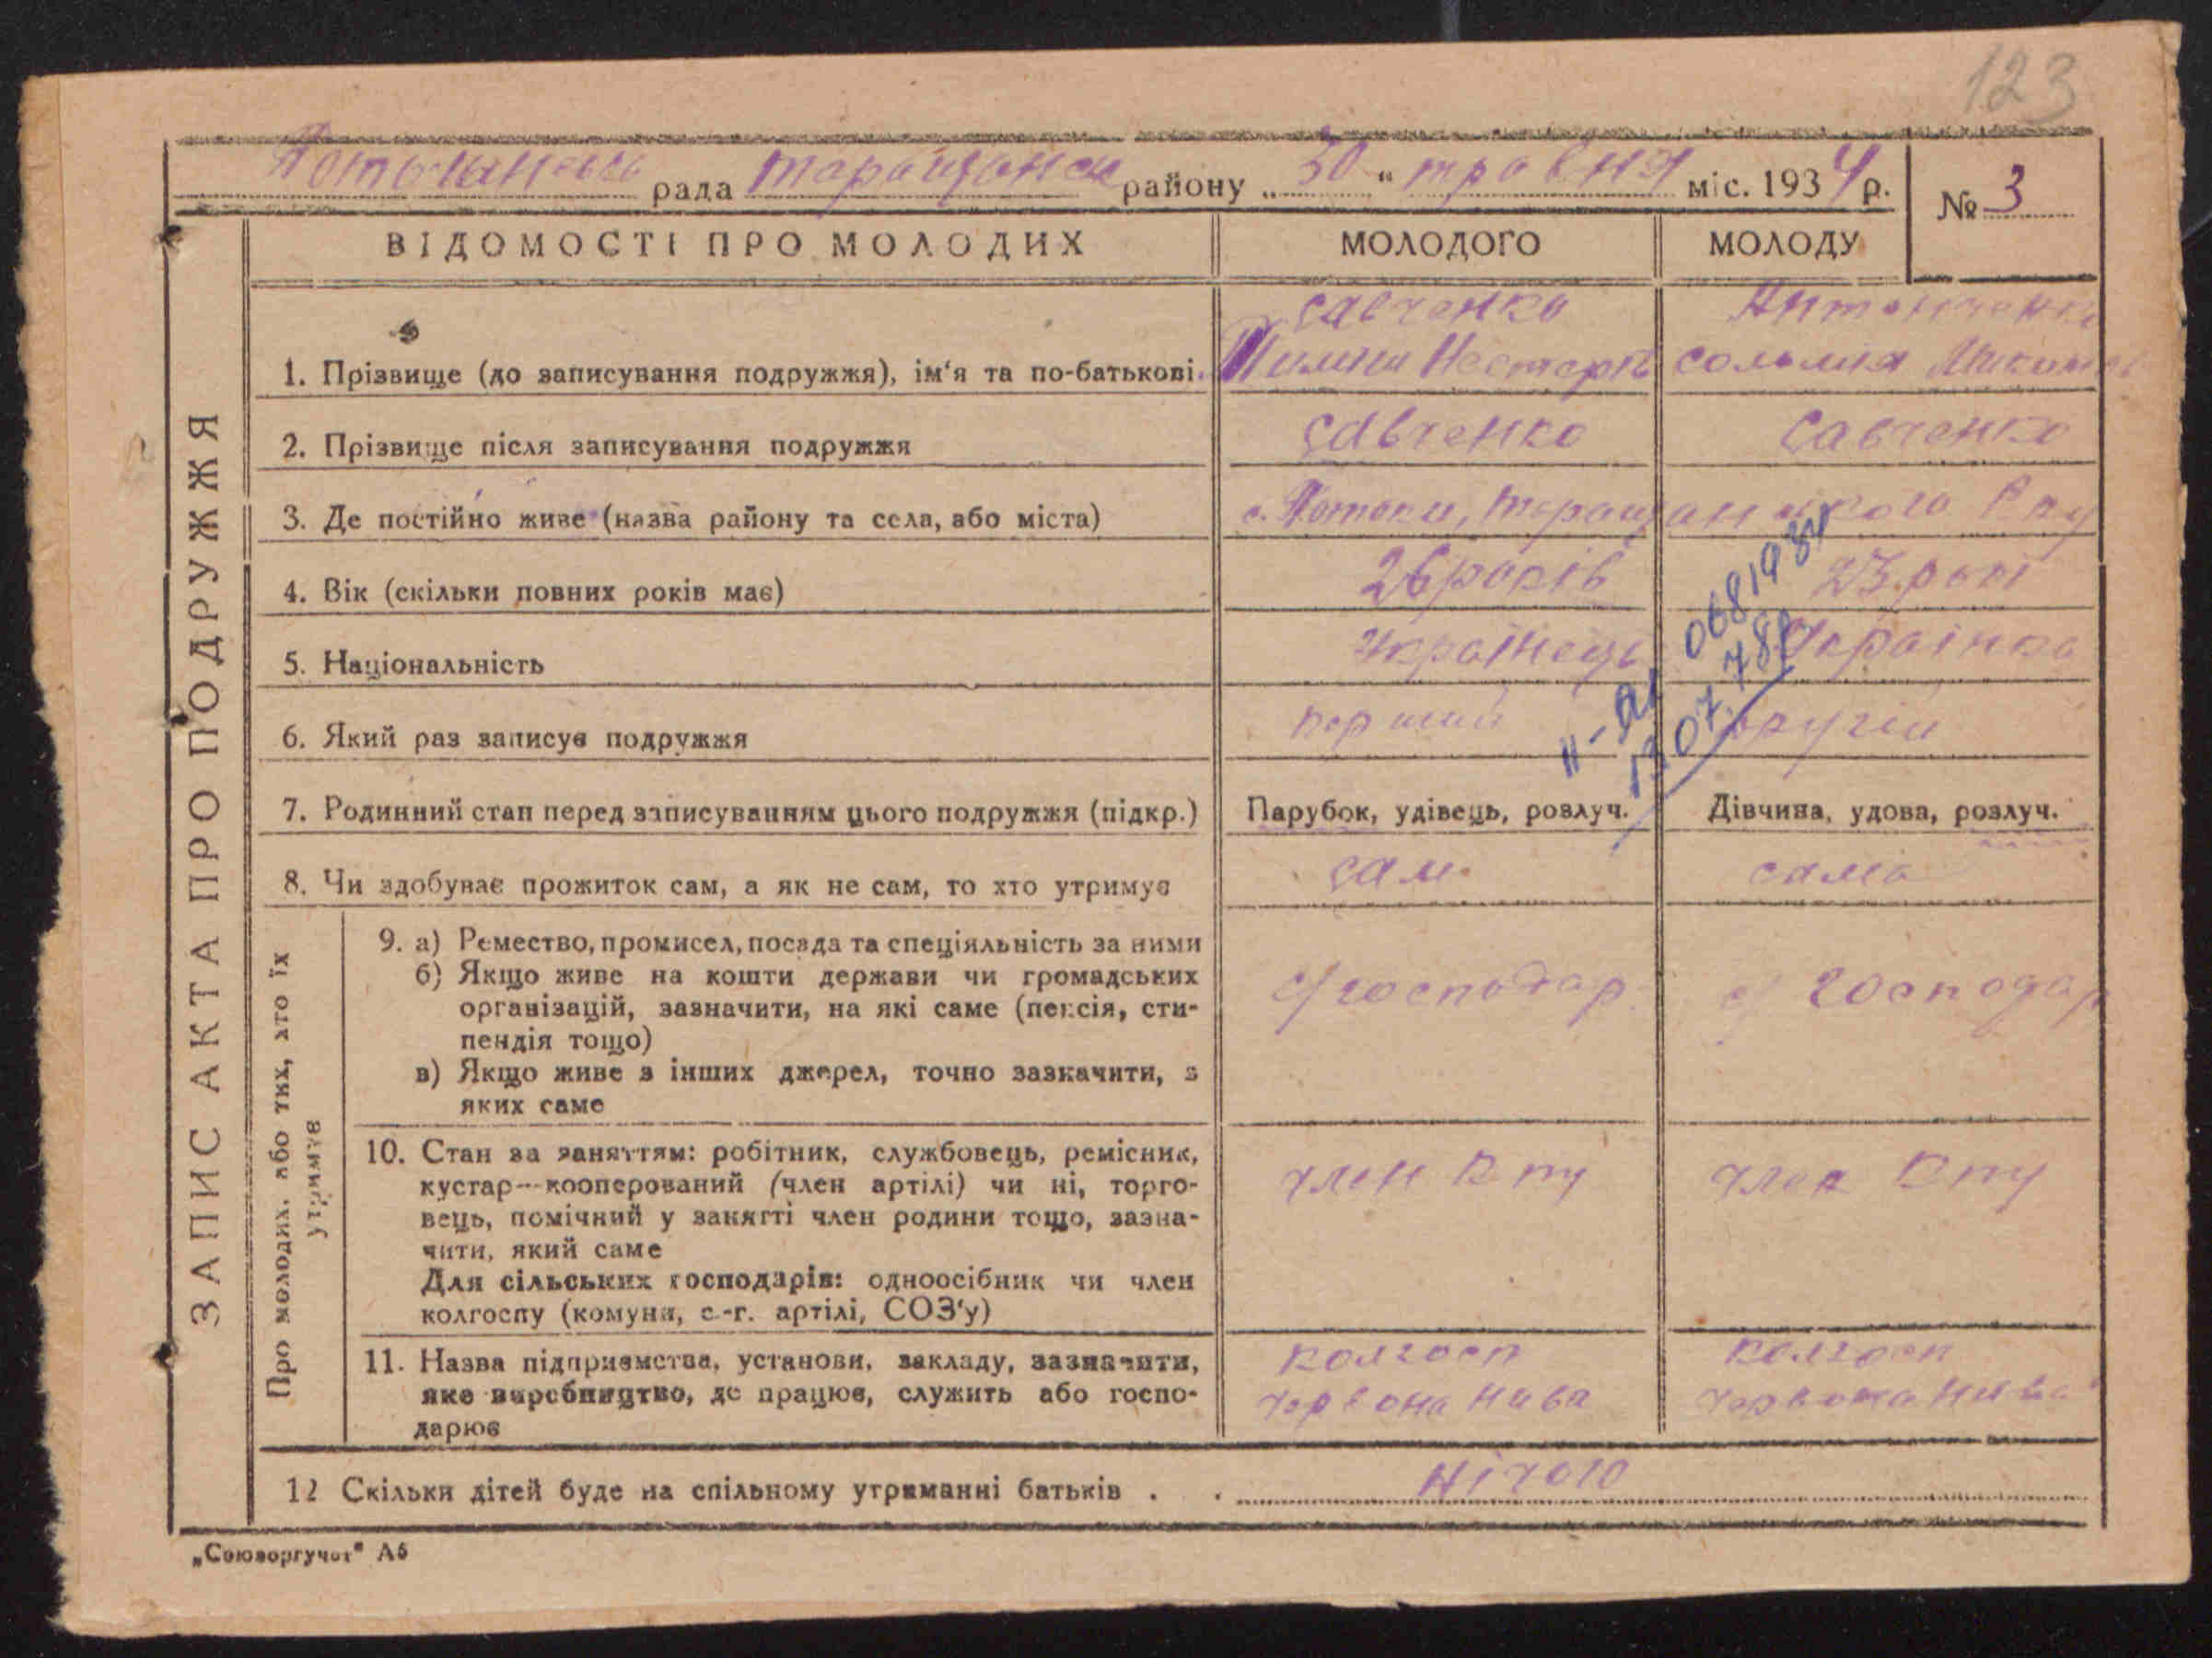 123
рада района „30“ травня міс. 1934 р.
№ 3
ЗАПИС АКТА ПРО ПОДРУЖЖЯ
ВІДОМОСТІ ПРО МОЛОДИХ МОЛОДОГО МОЛОДУ
Савченко
1. Прізвище (до записування подружжя), ім‘я та по-батькові.
2. Прізвище після записування подружжя Савченко Савченко
3. Де постійно живе (назва району та села, або міста) с. Потоки,
4. Вік (скільки повних років має) 26 років 23 роки
5. Національність Українець Українка
6. Який раз записує подружжя перший другий
7. Родинний стан перед записуванням цього подружжя (підкр.) Парубок, удівець, розлуч. Дівчина, удова, розлуч.
8. Чи здобуває прожиток сам, а як не сам, то хто утримує сам сама
Про молодих, або тих, хто їх утримує
9. а) Ремество, промисел, посада та спеціяльність за ними
б) Якщо живе на кошти держави чи громадських
організацій, зазначити, на які саме (пенсія, сти-
пендія тощо)
в) Якщо живе з інших джерел, точно зазначити, з
яких саме
с/господар с/господар
10. Стан за заняттям: робітник, службовець, ремісник,
кустар—кооперований (член артілі) чи ні, торго-
вець, помічний у занятті член родини тощо, зазна-
чити, який саме
Для сільських господарів: одноосібник чи член
колгоспу (комуни, с.-г. артілі, СОЗ‘у)
член член
11. Назва підприємства, установи, закладу, зазначити,
яке виробництво, де працює, служить або госпо-
дарює
колгосп колгосп
Червона Нива Червона Нива
12 Скільки дітей буде на спільному утриманні батьків . .
„Союзоргучот“ А5